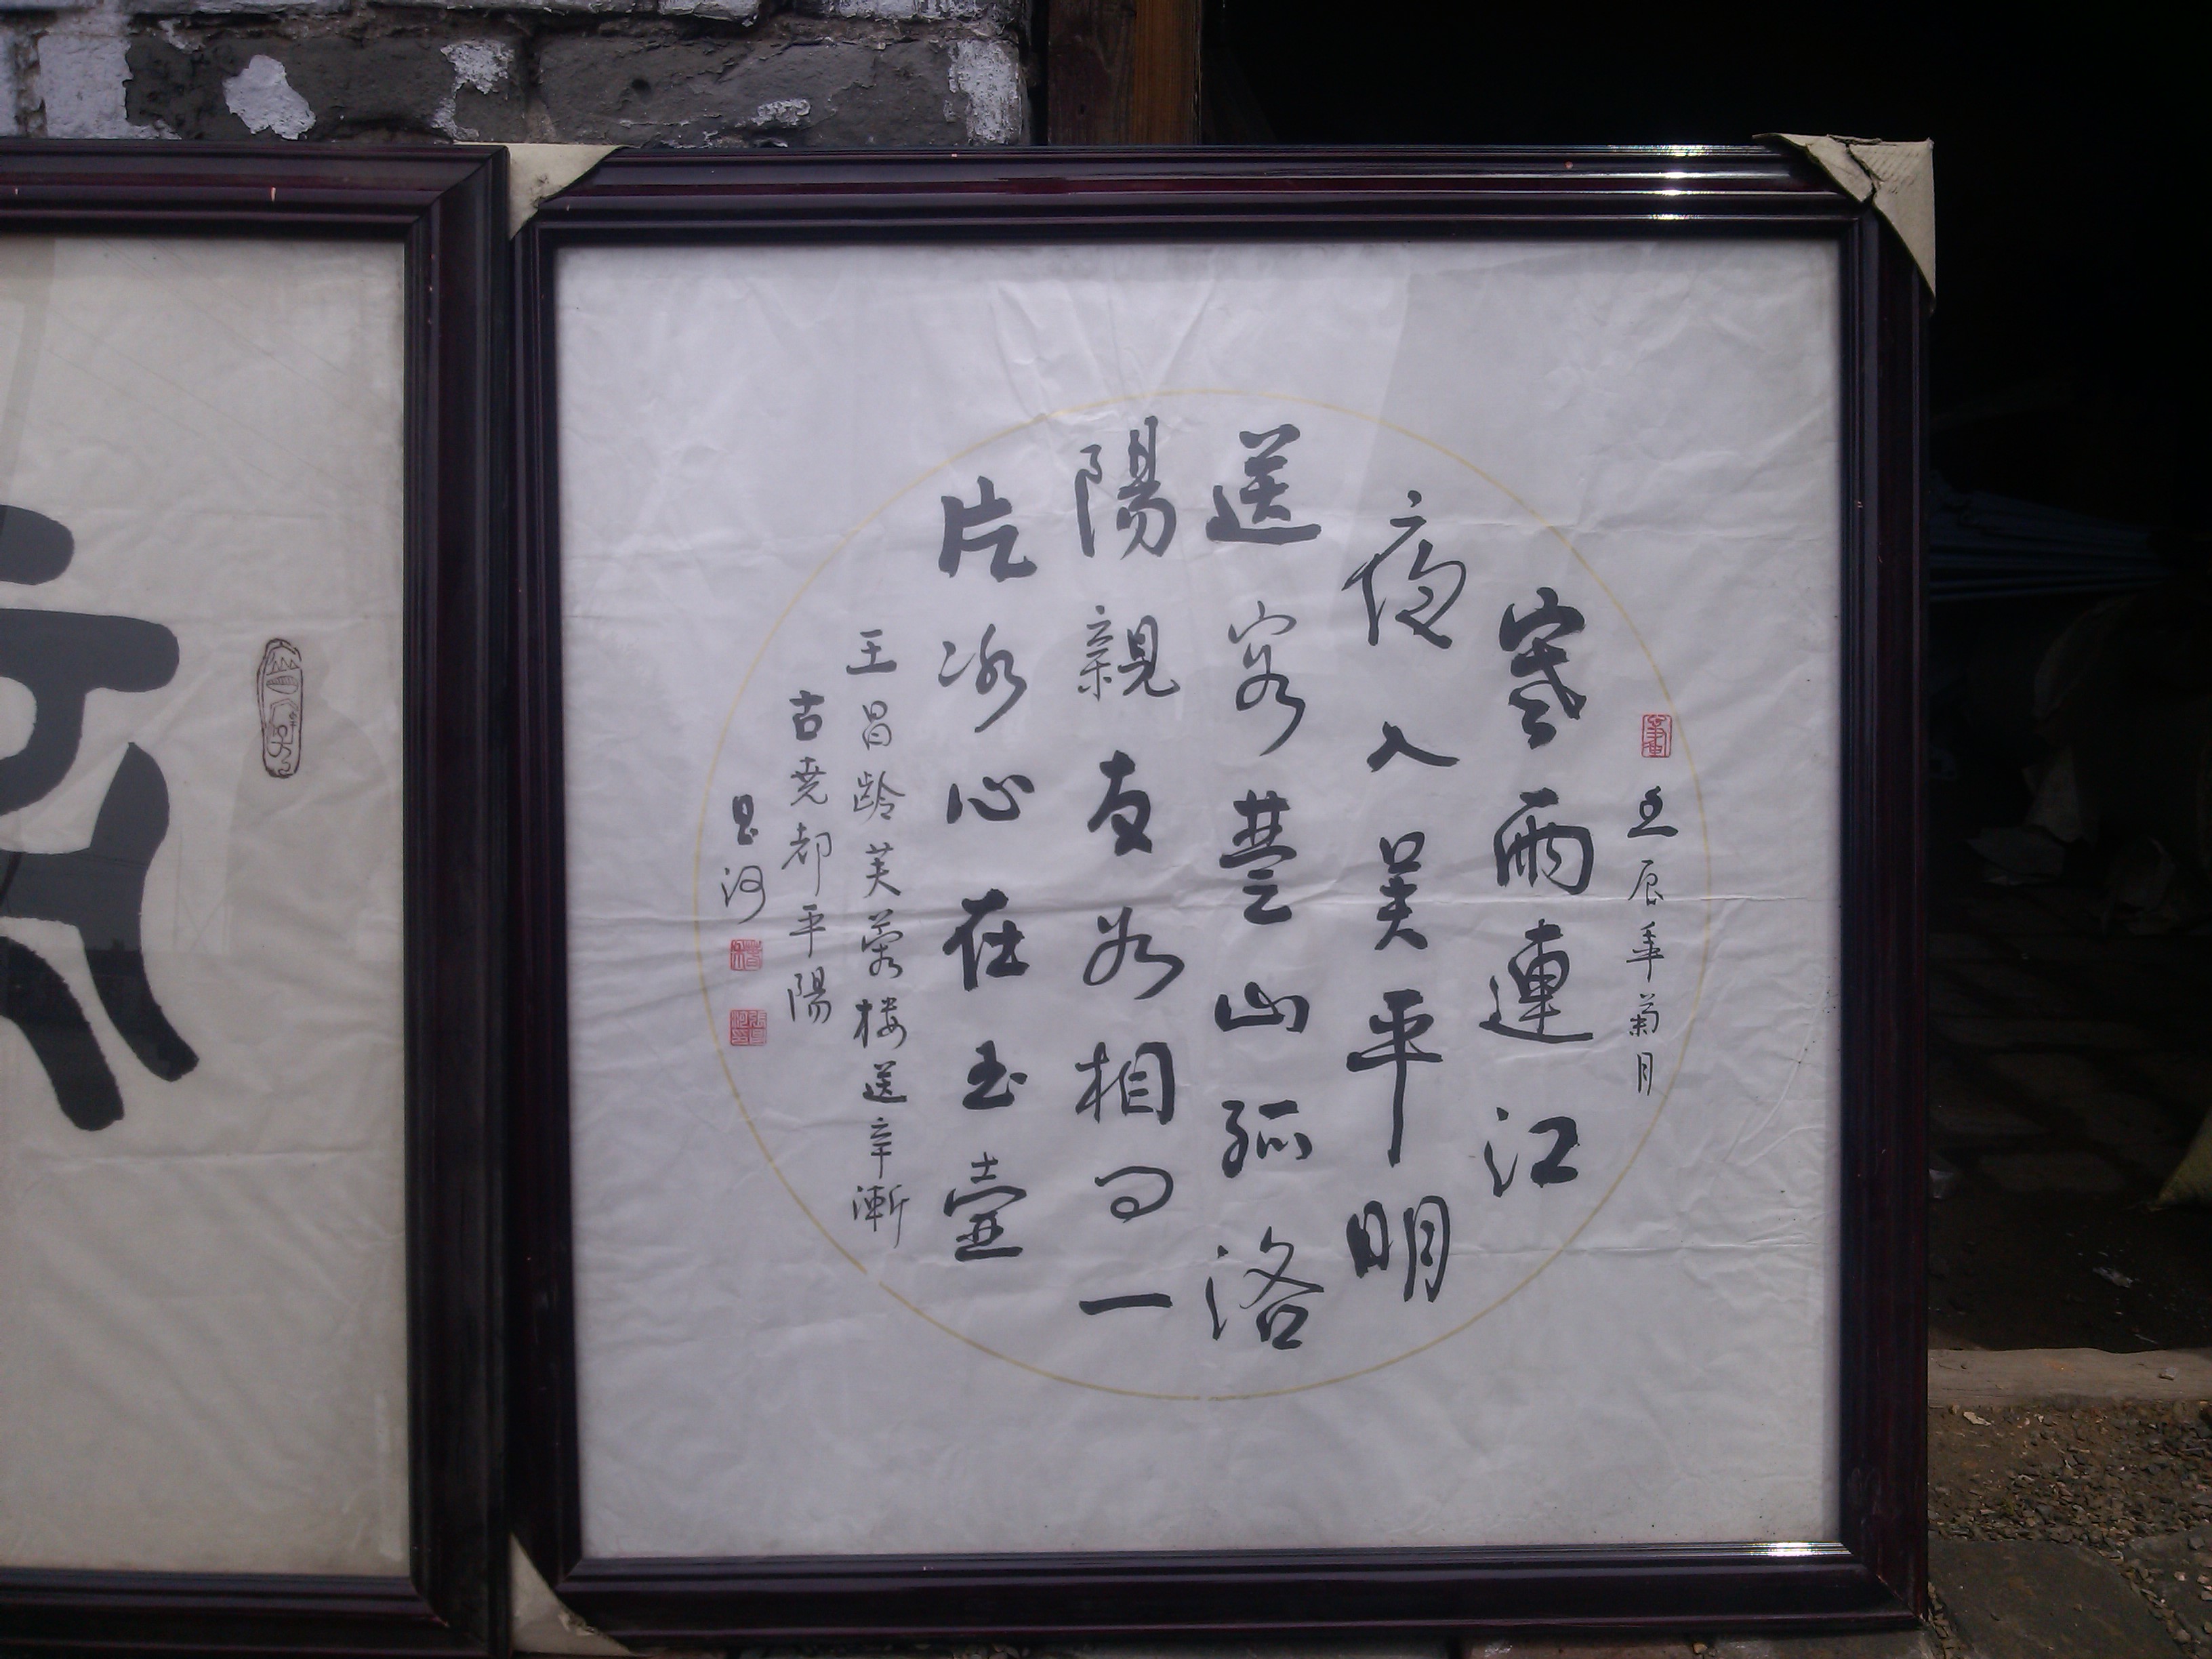 壬辰年菊月
寒雨連江
夜入吴平明
送客楚山孤洛
陽親友如相问一
片冰心在玉壺
王昌龄芙蓉楼送辛漸
古尭都平陽
河